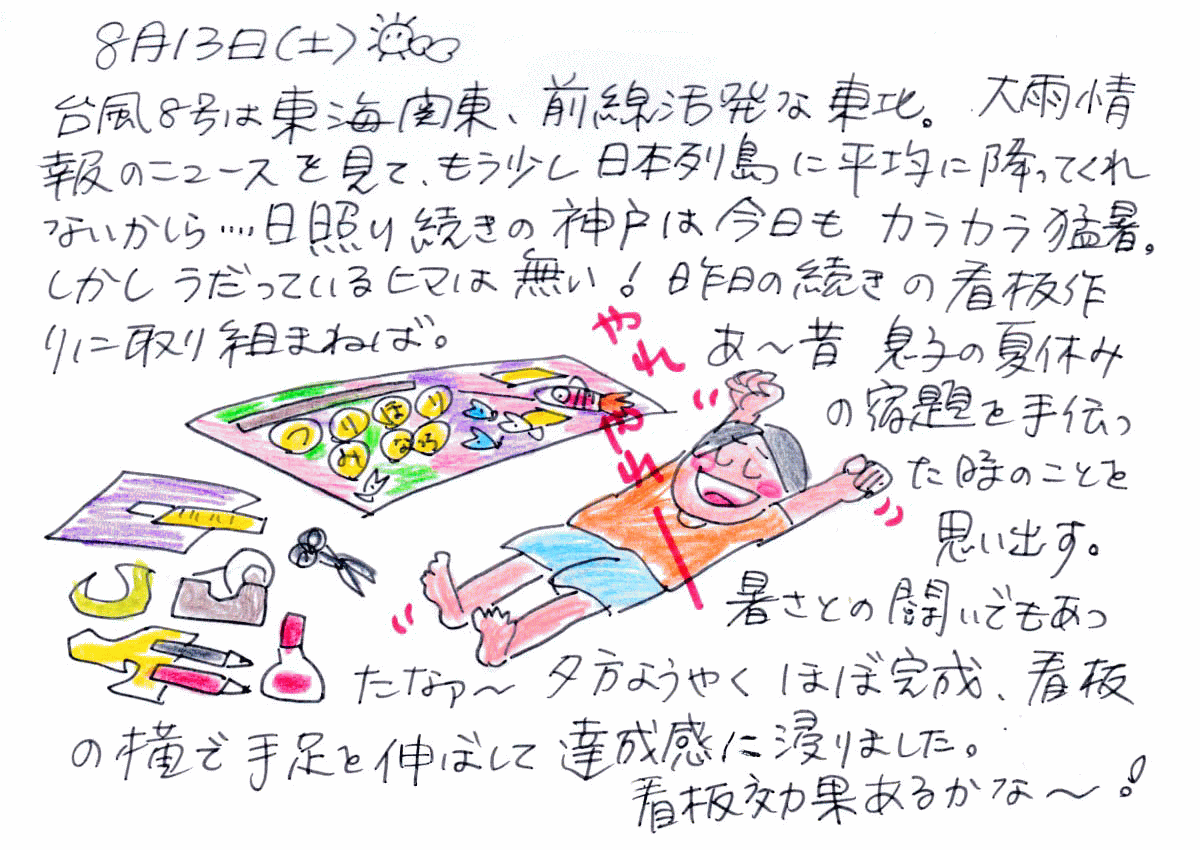 8月13日(土)
台風8号は東海関東、前線活発な東北。大雨情
報のニュースを見て、もう少し日本列島に平均に降ってくれ
ないかしら‥‥日照り続きの神戸は今日もカラカラ猛暑。
しかしうだっているヒマは無い!昨日の続きの看板作
りに取り組まねば。
あ〜昔息子の夏休み
の宿題を手伝っ
た時のことを
思い出す。
暑さとの闘いでもあっ
たなァ〜夕方ようやくほぼ完成、看板
の横で手足を伸ばして達成感に浸りました。
看板効果あるかな〜!
やれ
やれ
つりほり